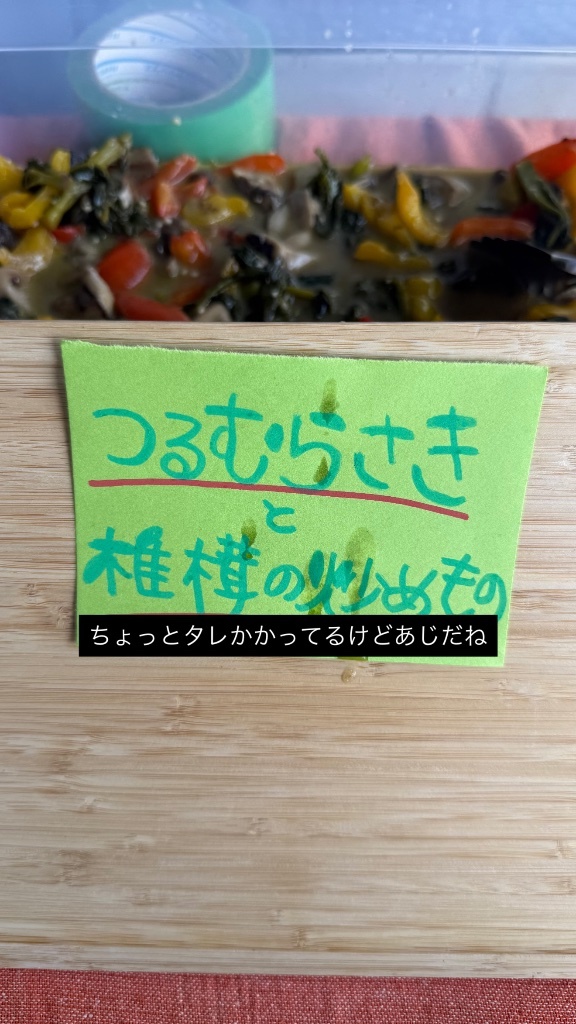 つるむらさき
と
椎樽の炒めもの
ちょっとタレかかってるけどあじだね